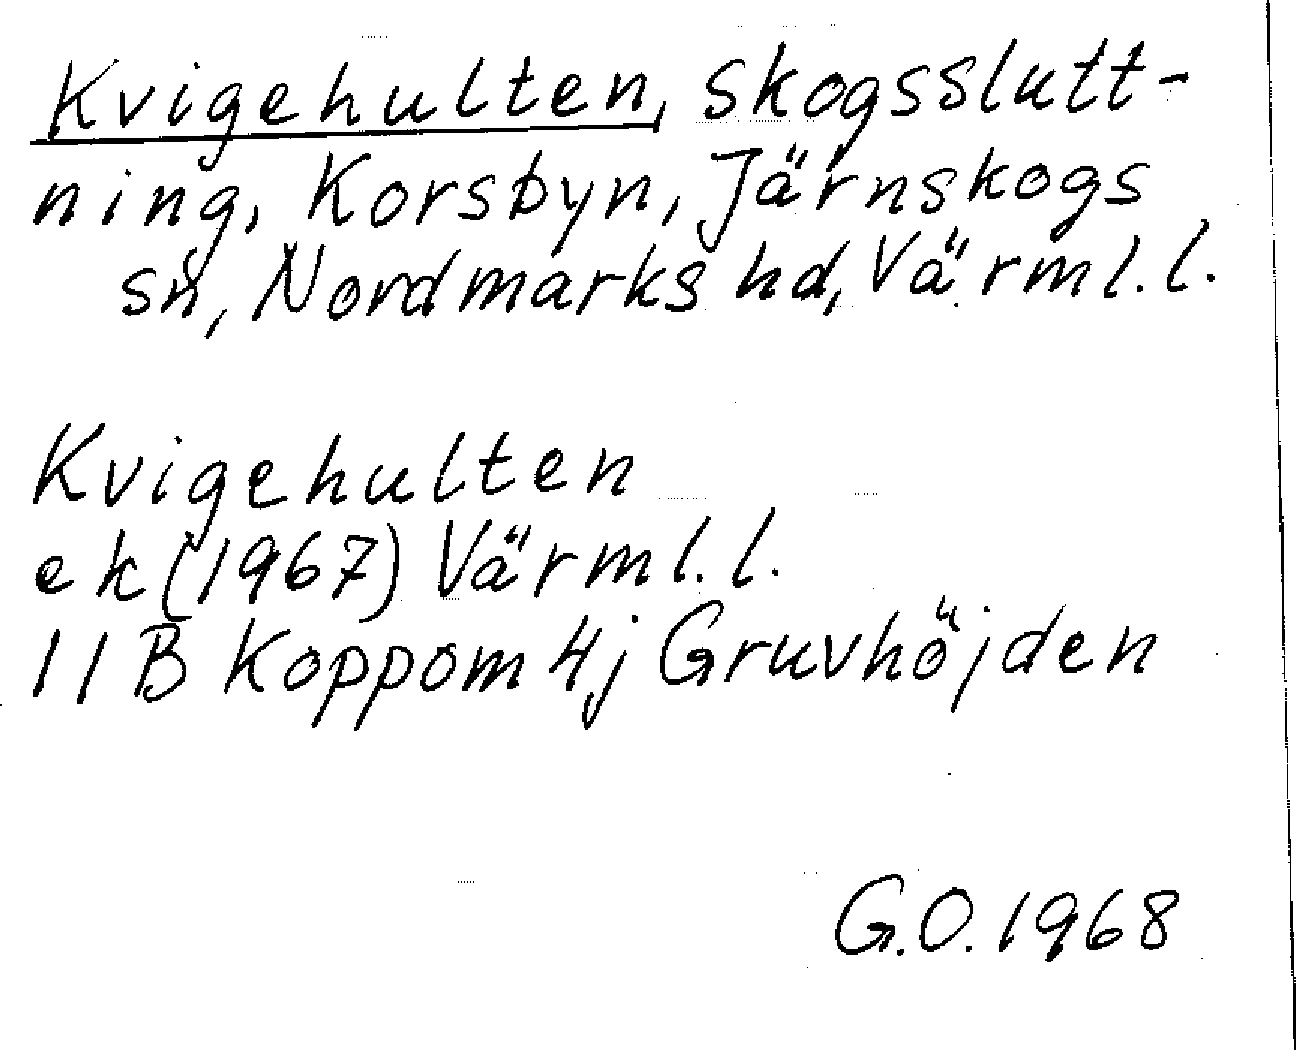 Kvigehulten, skogsslutt-
ning, Korsbyn, Järnskogs
sn, Nordmarks hd, Värml. l.
Kvigehulten
ek (1967) Värml. l.
11 B Koppom 4j Gruvhöjden
G.O. 1968